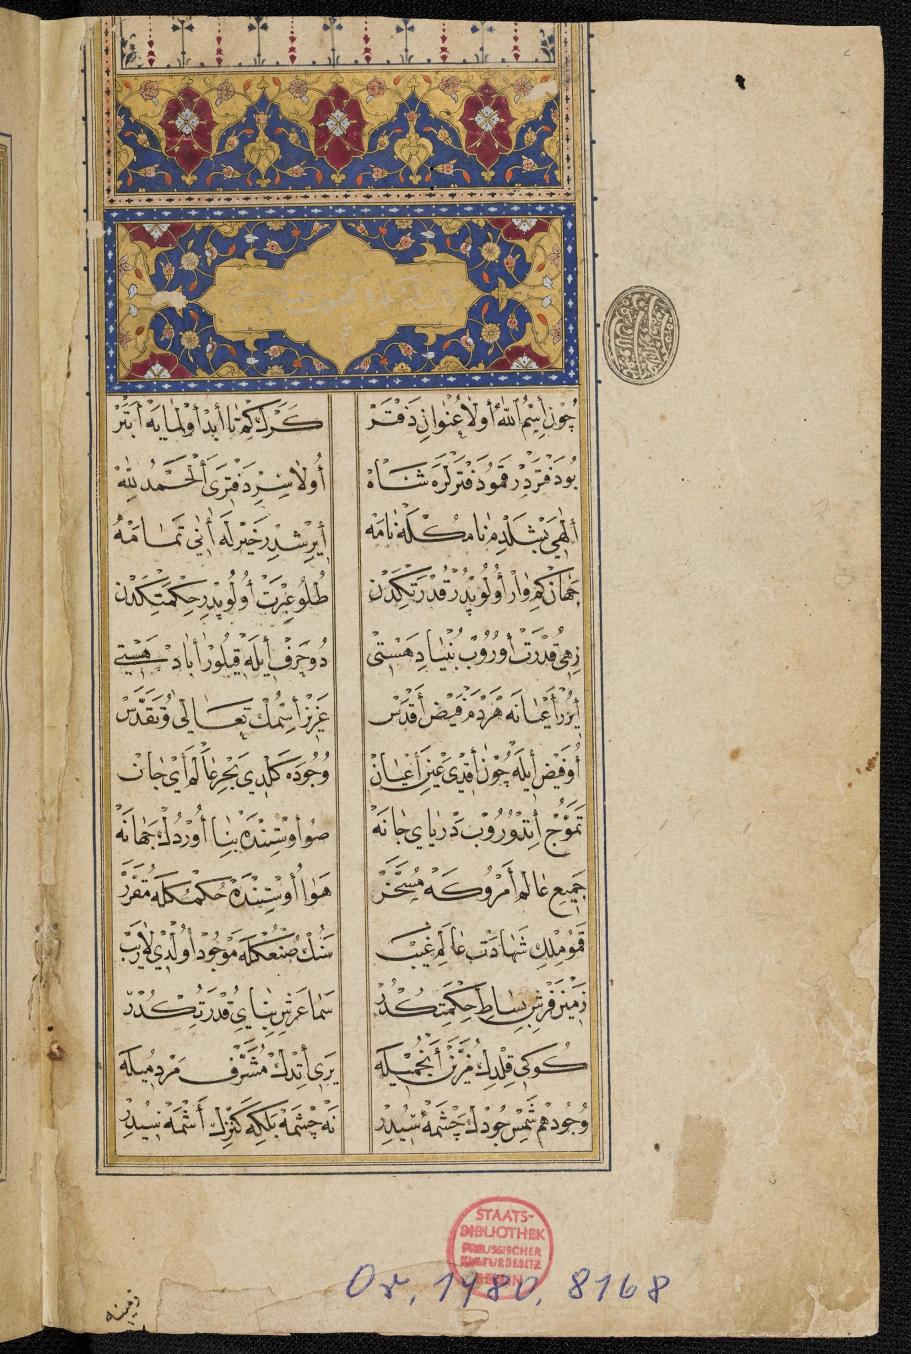 چون اسم الله اولا عنوان دفتر كرك كم تا ابد اولمايه ابتر
بو دفتردر قمو دفترلره شاه اولا سر دفتری الحمد لله
الهی بشلدم نامكله نامه ایرشدر خیرله انی تمامه
جهان كم وار اولوپدر قدرتكدن طلو عبرت اولوپدر حكمتكدن
زهی قدرت اوروب بنیاد هستی دو حرف ایله قیلور اباد هستی
ایرر اعیانه هردم فیض اقدس عزیز اسمك تعالی و تقدس
او فیض ایله چون اقدی عین اعیان وجوده كلدی بحر عالم ای جان
تموج اتدوروب دریای جانه صو اوستنده بنا اوردك جهانه
جمیع عالم امروكه مسخر هوا اوستنده حكمكله مقرر
قمو ملك شهادت عالم غیب سنك صنعكله موجود اولدی لاریب
زمین فرش بساط حكمتكدر سما عرش بنای قدرتكدر
كوكی قلدك مزین انجمیله یری اتدك مشرف مردمیله
وجود هم شمس جودك چشمه سیدر نه چشمه بلكه كنزك اشمه سیدر
STAATS-
BIBLIOTHEK
PREUSSISCHER
KULTURBESITZ
BERLIN
Or. 1980, 8168
زمینه